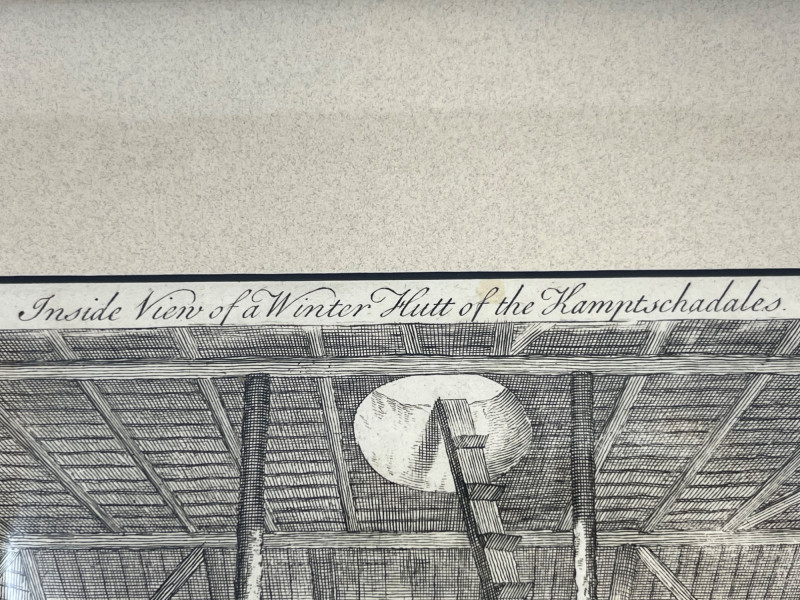 Inside View of a Winter Hutt of the Kamptschadales.